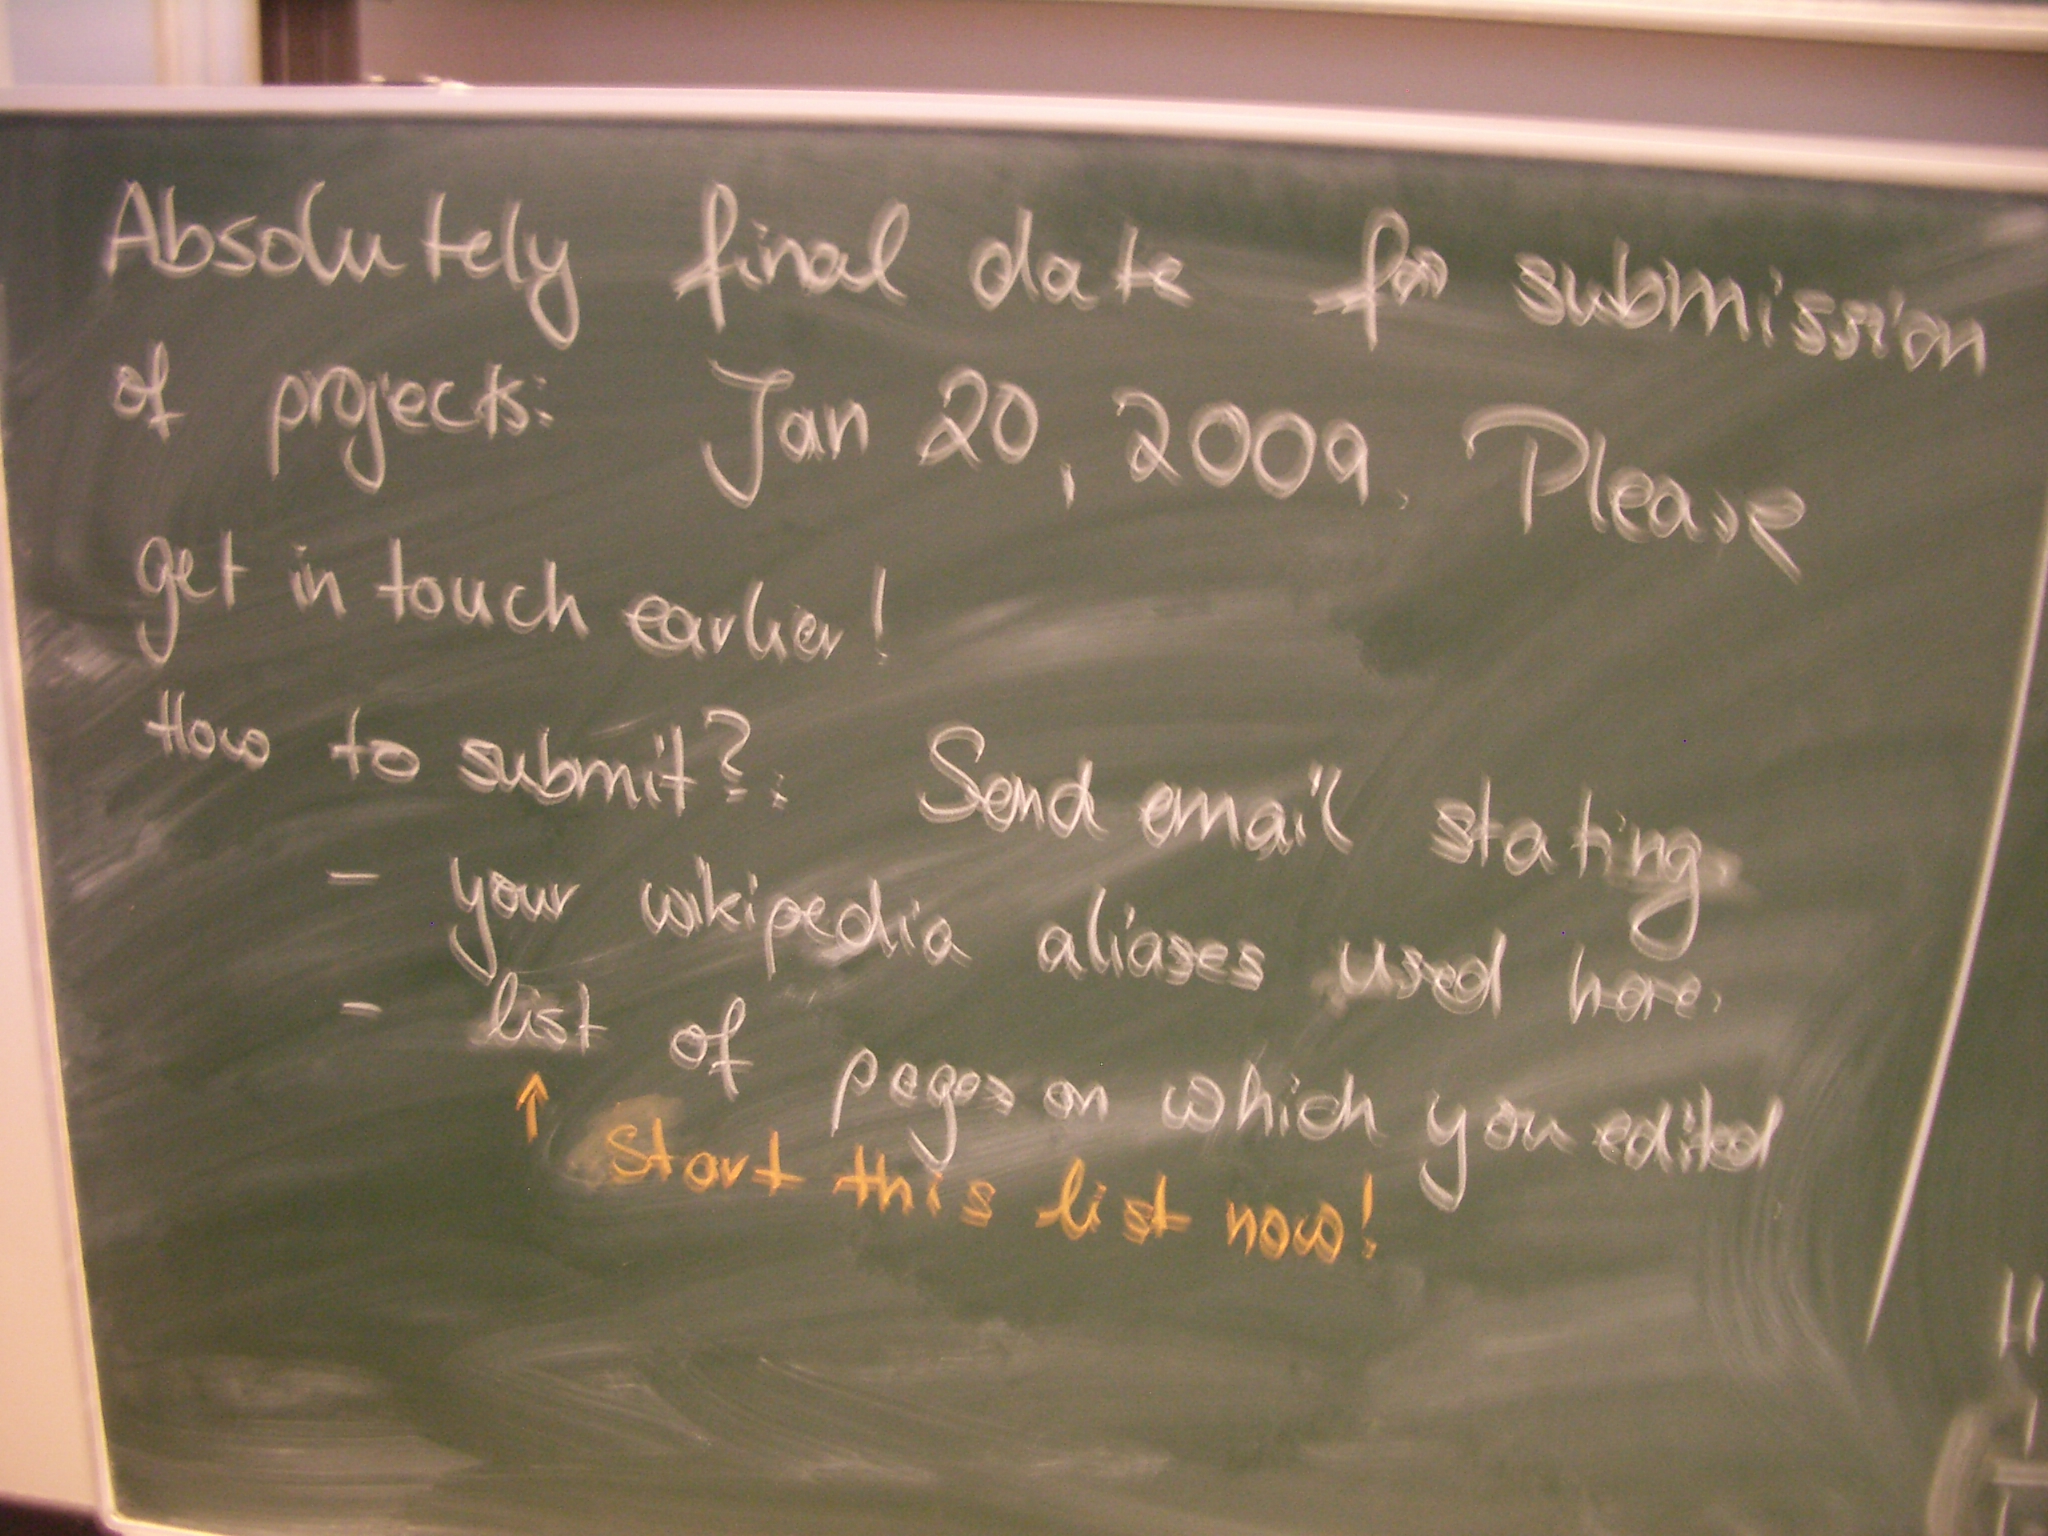 Absolutely final date for submission
of projects: Jan 20, 2009. Please
get in touch earlier!
How to submit?: Send email stating
- your wikipedia aliases used here.
- list of pages on which you edited
↑ Start this list now!